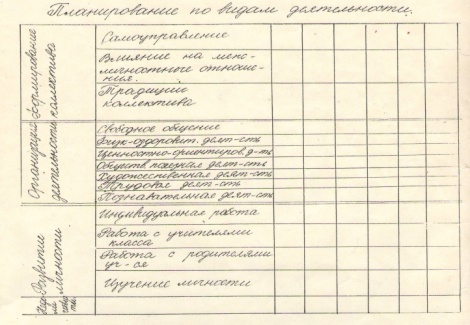 Планирование по видам деятельности.
Формирование коллектива
Самоуправление
Влияние на меж-
личностные отноше-
ния.
Традиции
коллектива
Организация
деятельности
Свободное общение
Физк-оздоровит. деят-сть
Ценностно-ориентиров. д-ть
Обществ полезная деят-сть
Художественная деят-сть
Трудовая деят-сть
Познавательная деят-сть
Развитие
личности
Индивидуальная работа
Работа с учителями
класса
Работа с родителями
уч-ся
Изучение личности